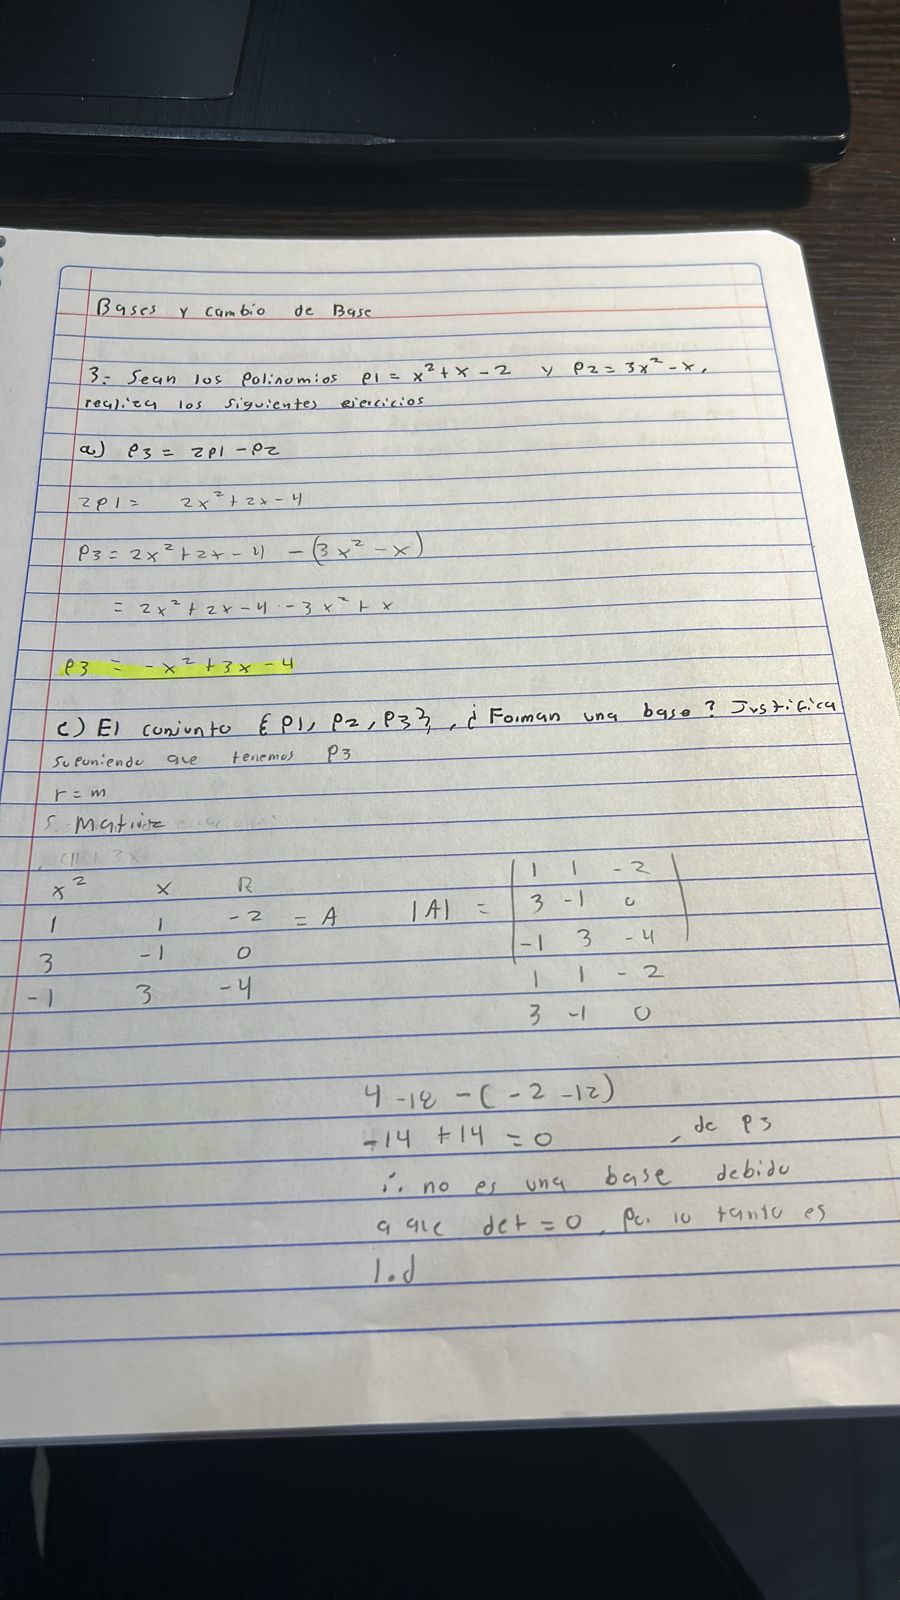 Bases y cambio de Base
3.- Sean los polinomios P1 = x² + x - 2 y P2 = 3x² - x,
realiza los siguientes ejercicios
a) P3 = 2P1 - P2
2P1 = 2x² + 2x - 4
P3 = 2x² + 2x - 4 - (3x² - x)
= 2x² + 2x - 4 - 3x² + x
P3 = -x² + 3x - 4
c) El conjunto {P1, P2, P3}, ¿Forman una base? Justifica
suponiendo que tenemos P3
r = m
Matriz
x² x R
1 1 -2 = A
3 -1 0
-1 3 -4
|A| = | 1 1 -2 |
3 -1 0
-1 3 -4
1 1 -2
3 -1 0
4 -18 - (-2 -12)
-14 + 14 = 0
∴ no es una base de P3 debido
a que det = 0, por lo tanto es
l.d